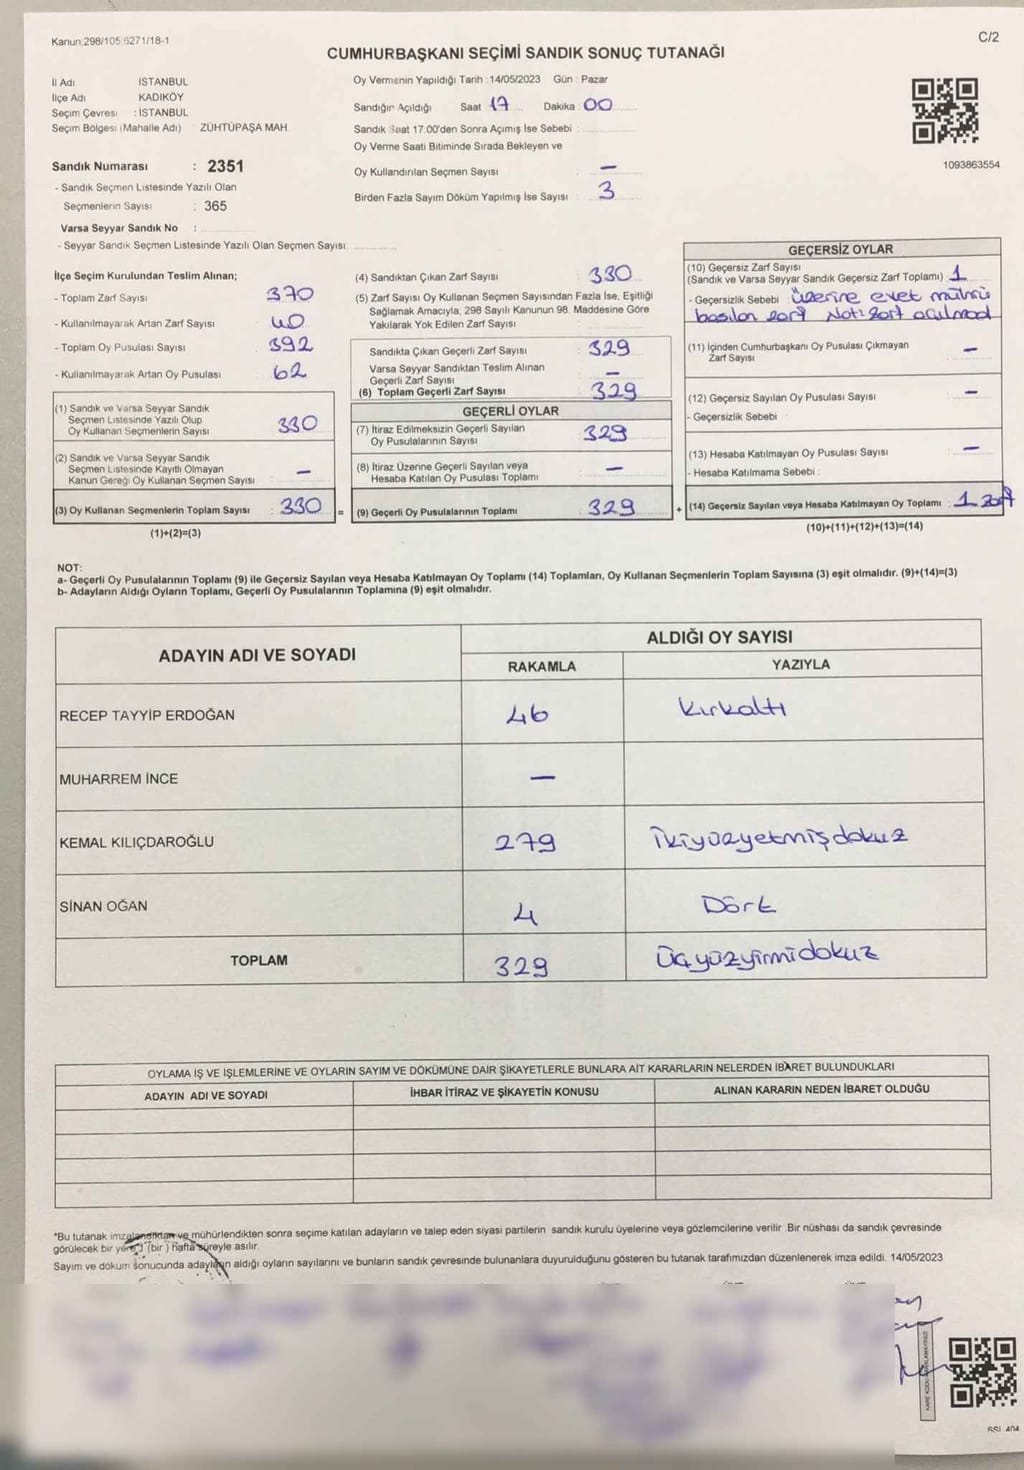 Kanun 298/105 6271/18-1
C/2
CUMHURBAŞKANI SEÇİMİ SANDIK SONUÇ TUTANAĞI
İl Adı İSTANBUL
İlçe Adı KADIKÖY
Seçim Çevresi : İSTANBUL
Seçim Bölgesi (Mahalle Adı) ZÜHTÜPAŞA MAH.
Sandık Numarası : 2351
- Sandık Seçmen Listesinde Yazılı Olan
Seçmenlerin Sayısı : 365
Varsa Seyyar Sandık No :
- Seyyar Sandık Seçmen Listesinde Yazılı Olan Seçmen Sayısı:
Oy Vermenin Yapıldığı Tarih : 14/05/2023 Gün : Pazar
Sandığın Açıldığı Saat 17 Dakika : 00
Sandık Saat 17:00'den Sonra Açımış İse Sebebi :
Oy Verme Saati Bitiminde Sırada Bekleyen ve
Oy Kullandırılan Seçmen Sayısı : —
Birden Fazla Sayım Döküm Yapılmış İse Sayısı : 3
1093863554
İlçe Seçim Kurulundan Teslim Alınan;
- Toplam Zarf Sayısı 370
- Kullanılmayarak Artan Zarf Sayısı : 40
- Toplam Oy Pusulası Sayısı : 392
- Kullanılmayarak Artan Oy Pusulası : 62
(1) Sandık ve Varsa Seyyar Sandık
Seçmen Listesinde Yazılı Olup
Oy Kullanan Seçmenlerin Sayısı : 330
(2) Sandık ve Varsa Seyyar Sandık
Seçmen Listesinde Kayıtlı Olmayan
Kanun Gereği Oy Kullanan Seçmen Sayısı : —
(3) Oy Kullanan Seçmenlerin Toplam Sayısı : 330
(1)+(2)=(3)
=
(4) Sandıktan Çıkan Zarf Sayısı : 330
(5) Zarf Sayısı Oy Kullanan Seçmen Sayısından Fazla İse, Eşitliği
Sağlamak Amacıyla; 298 Sayılı Kanunun 98. Maddesine Göre
Yakılarak Yok Edilen Zarf Sayısı :
Sandıkta Çıkan Geçerli Zarf Sayısı : 329
Varsa Seyyar Sandıktan Teslim Alınan
Geçerli Zarf Sayısı : —
(6) Toplam Geçerli Zarf Sayısı : 329
GEÇERLİ OYLAR
(7) İtiraz Edilmeksizin Geçerli Sayılan
Oy Pusulalarının Sayısı : 329
(8) İtiraz Üzerine Geçerli Sayılan veya
Hesaba Katılan Oy Pusulası Toplamı : —
(9) Geçerli Oy Pusulalarının Toplamı : 329
+
GEÇERSİZ OYLAR
(10) Geçersiz Zarf Sayısı
(Sandık ve Varsa Seyyar Sandık Geçersiz Zarf Toplamı) : 1
- Geçersizlik Sebebi : Üzerine evet mührü
basılan zarf Not: Zarf açılmad
(11) İçinden Cumhurbaşkanı Oy Pusulası Çıkmayan
Zarf Sayısı : —
(12) Geçersiz Sayılan Oy Pusulası Sayısı : —
- Geçersizlik Sebebi :
(13) Hesaba Katılmayan Oy Pusulası Sayısı : —
- Hesaba Katılmama Sebebi :
(14) Geçersiz Sayılan veya Hesaba Katılmayan Oy Toplamı : 1 zarf
(10)+(11)+(12)+(13)=(14)
NOT:
a- Geçerli Oy Pusulalarının Toplamı (9) ile Geçersiz Sayılan veya Hesaba Katılmayan Oy Toplamı (14) Toplamları, Oy Kullanan Seçmenlerin Toplam Sayısına (3) eşit olmalıdır. (9)+(14)=(3)
b- Adayların Aldığı Oyların Toplamı, Geçerli Oy Pusulalarının Toplamına (9) eşit olmalıdır.
ADAYIN ADI VE SOYADI
ALDIĞI OY SAYISI
RAKAMLA YAZIYLA
RECEP TAYYİP ERDOĞAN 46 Kırkaltı
MUHARREM İNCE —
KEMAL KILIÇDAROĞLU 279 İkiyüzyetmişdokuz
SİNAN OĞAN 4 Dört
TOPLAM 329 Üçyüzyirmidokuz
OYLAMA İŞ VE İŞLEMLERİNE VE OYLARIN SAYIM VE DÖKÜMÜNE DAİR ŞİKAYETLERLE BUNLARA AİT KARARLARIN NELERDEN İBARET BULUNDUKLARI
ADAYIN ADI VE SOYADI İHBAR İTİRAZ VE ŞİKAYETİN KONUSU ALINAN KARARIN NEDEN İBARET OLDUĞU
*Bu tutanak imzalandıktan ve mühürlendikten sonra seçime katılan adayların ve talep eden siyasi partilerin sandık kurulu üyelerine veya gözlemcilerine verilir. Bir nüshası da sandık çevresinde
görülecek bir yere 1 (bir) hafta süreyle asılır.
Sayım ve döküm sonucunda adayların aldığı oyların sayılarını ve bunların sandık çevresinde bulunanlara duyurulduğunu gösteren bu tutanak tarafımızdan düzenlenerek imza edildi. 14/05/2023